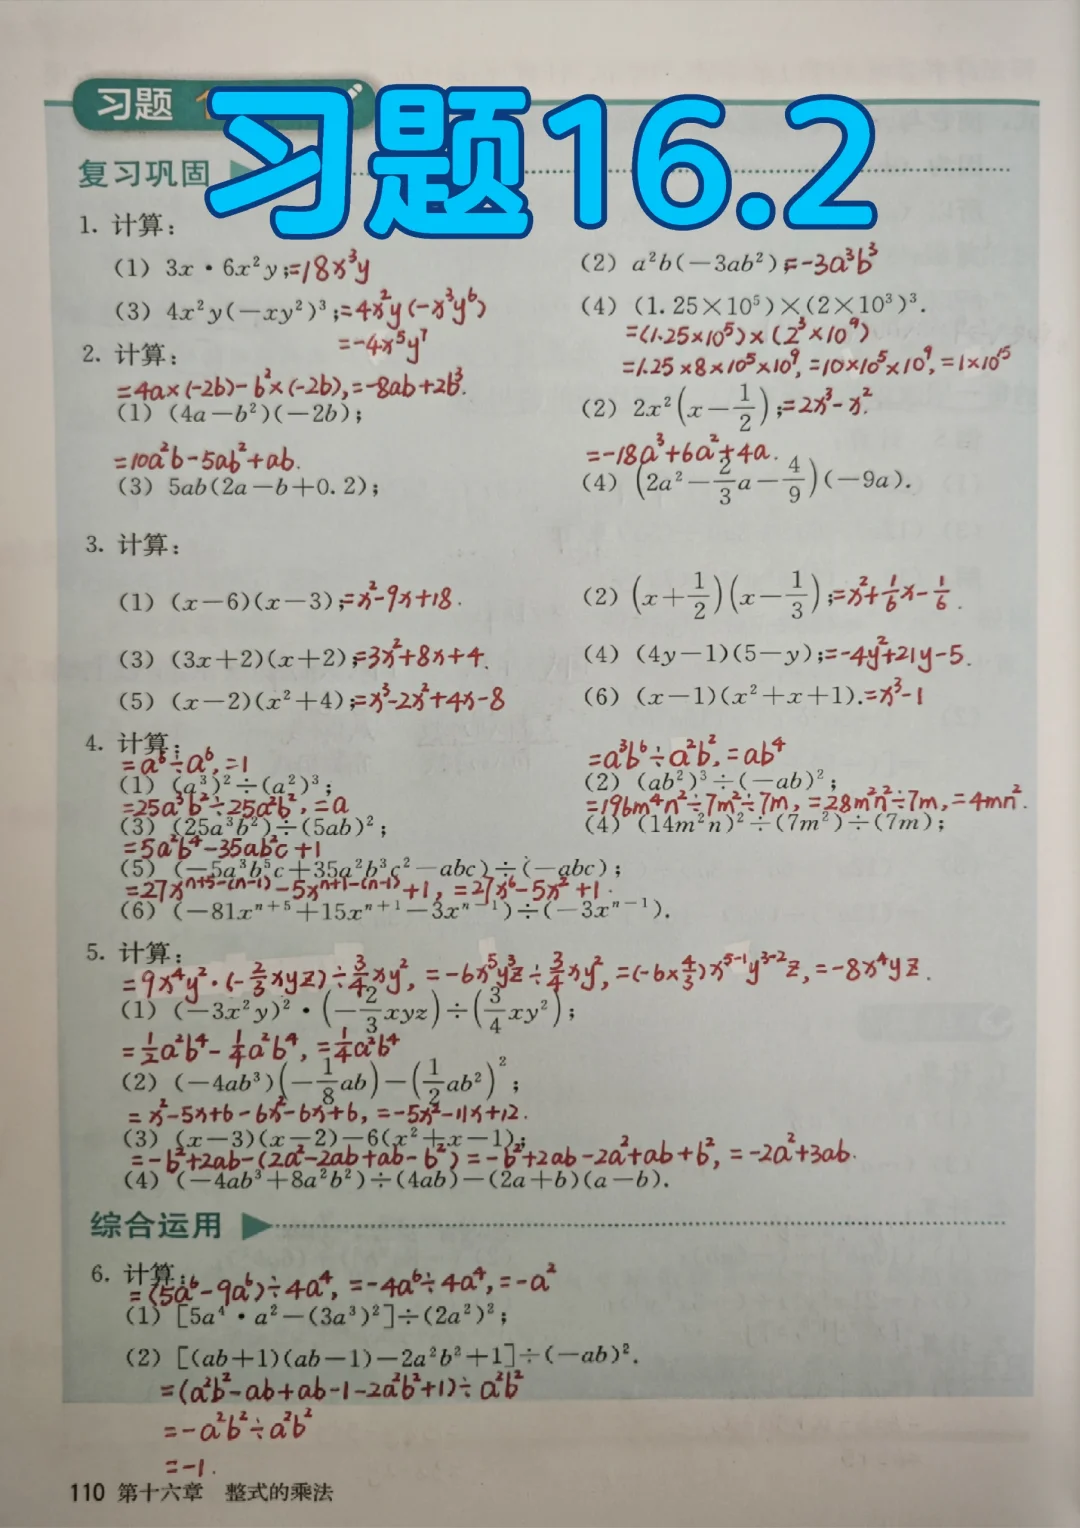 习题 1
习题16.2
复习巩固
1. 计算：
(1) 3x·6x²y; =18x³y
(2) a²b(-3ab²); =-3a³b³
(3) 4x²y(-xy²)³; =4x²y(-x³y⁶)
=-4x⁵y⁷
(4) (1.25×10⁵)×(2×10³)³.
=(1.25×10⁵)×(2³×10⁹)
=1.25×8×10⁵×10⁹, =10×10⁵×10⁹, =1×10¹⁵
2. 计算：
=4a×(-2b)-b²×(-2b), =-8ab+2b³.
(1) (4a-b²)(-2b);
(2) 2x²(x-1/2); =2x³-x².
=10a²b-5ab²+ab.
(3) 5ab(2a-b+0.2);
=-18a³+6a²+4a.
(4) (2a²-2/3a-4/9)(-9a).
3. 计算：
(1) (x-6)(x-3); =x²-9x+18.
(2) (x+1/2)(x-1/3); =x²+1/6x-1/6.
(3) (3x+2)(x+2); =3x²+8x+4.
(4) (4y-1)(5-y); =-4y²+21y-5.
(5) (x-2)(x²+4); =x³-2x²+4x-8
(6) (x-1)(x²+x+1). =x³-1
4. 计算：
=a⁶÷a⁶, =1
(1) (a³)²÷(a²)³;
=a³b⁶÷a²b², =ab⁴
(2) (ab²)³÷(-ab)²;
=25a³b²÷25a²b², =a
(3) (25a³b²)÷(5ab)²;
=196m⁴n²÷7m²÷7m, =28m²n²÷7m, =4mn².
(4) (14m²n)²÷(7m²)÷(7m);
=5a²b⁴-35ab²c+1
(5) (-5a³b⁵c+35a²b³c²-abc)÷(-abc);
=27xⁿ⁺⁵⁻⁽ⁿ⁻¹⁾-5xⁿ⁺¹⁻⁽ⁿ⁻¹⁾+1, =27x⁶-5x²+1.
(6) (-81xⁿ⁺⁵+15xⁿ⁺¹-3xⁿ⁻¹)÷(-3xⁿ⁻¹).
5. 计算：
=9x⁴y²·(-2/3xyz)÷3/4xy², =-6x⁵y³z÷3/4xy², =(-6×4/3)x⁵⁻¹y³⁻²z, =-8x⁴yz.
(1) (-3x²y)²·(-2/3xyz)÷(3/4xy²);
=1/2a²b⁴-1/4a²b⁴, =1/4a²b⁴
(2) (-4ab³)(-1/8ab)-(1/2ab²)²;
=x²-5x+6-6x²-6x+6, =-5x²-11x+12.
(3) (x-3)(x-2)-6(x²+x-1);
=-b²+2ab-(2a²-2ab+ab-b²)=-b²+2ab-2a²+ab+b², =-2a²+3ab.
(4) (-4ab³+8a²b²)÷(4ab)-(2a+b)(a-b).
综合运用
6. 计算：
=(5a⁶-9a⁶)÷4a⁴, =-4a⁶÷4a⁴, =-a²
(1) [5a⁴·a²-(3a³)²]÷(2a²)²;
(2) [(ab+1)(ab-1)-2a²b²+1]÷(-ab)².
=(a²b²-ab+ab-1-2a²b²+1)÷a²b²
=-a²b²÷a²b²
=-1.
110 第十六章 整式的乘法